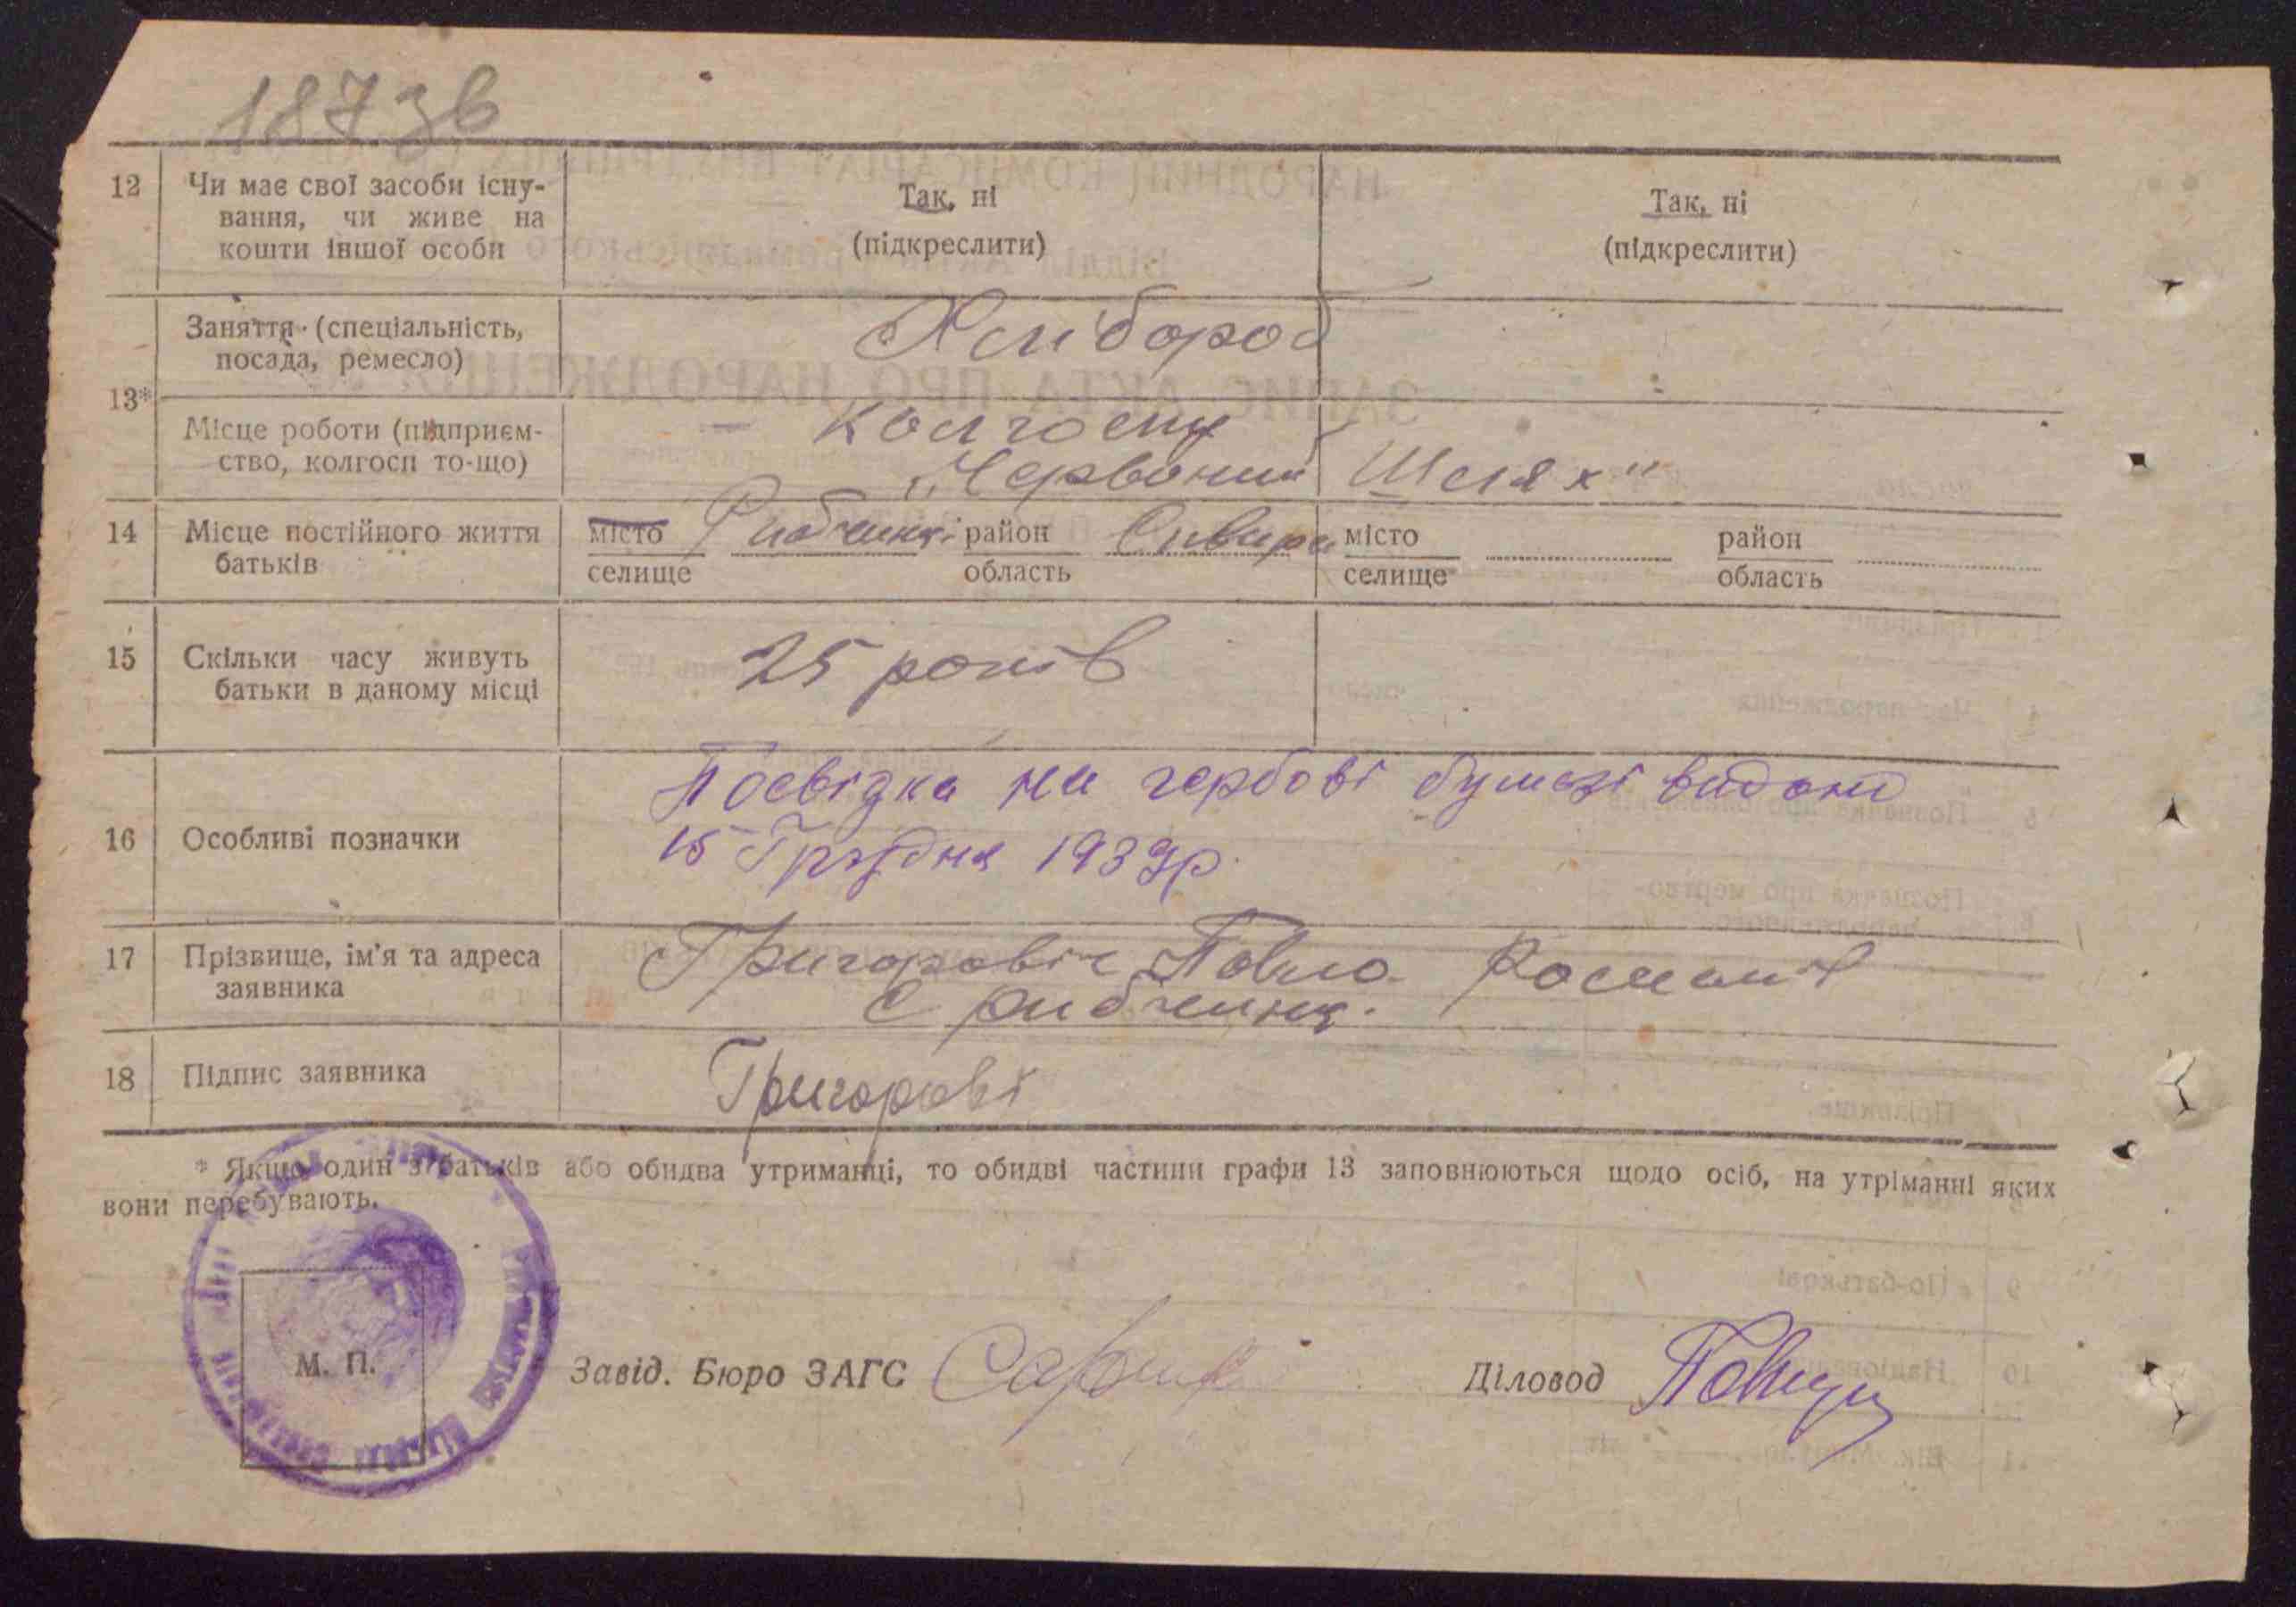 187 зв
12 Чи має свої засоби існу-
вання, чи живе на
кошти іншої особи
Так, ні
(підкреслити)
Так, ні
(підкреслити)
13*
Заняття (спеціальність,
посада, ремесло)
Хлібороб
Місце роботи (підприєм-
ство, колгосп то-що)
Колгоспу
„Червоний Шлях"
14 Місце постійного життя
батьків
місто
селище
Рибчинці
район
область
Сквира
місто
селище
район
область
15 Скільки часу живуть
батьки в даному місці
25 років
16 Особливі позначки
Посвідка на гербові бумазі видана
15 Грудня 1939р.
17 Прізвище, ім'я та адреса
заявника
Григорович Павло
С
18 Підпис заявника
Григорові
* Якщо один з батьків або обидва утриманці, то обидві частини графи 13 заповнюються щодо осіб, на утріманні яких
вони перебувають.
М. П.
Завід. Бюро ЗАГС
Діловод